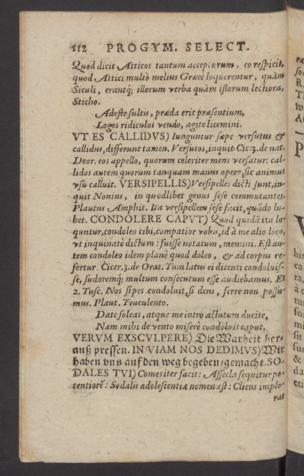 112 PROGYM. SELECT.
Quod dicit Atticos tantum accepturum, eo respicit,
quod Attici multò melius Græcè loquerentur, quàm
Siculi, erantq; illorum verba quàm istorum lectiora.
Sticho.
Adeste sultis, præda erit præsentium,
Logos ridiculos vendo, agite licemini.
VT ES CALLIDVS) Iunguntur sæpe versutus &
callidus, differunt tamen. Versutos, inquit Cic. 3. de nat.
Deor. eos appello, quorum celeriter mens versatur: cal-
lidos autem quorum tanquam manus opere, sic animus
usu calluit. VERSIPELLIS) Versipelles dicti sunt, in-
quit Nonius, in quodlibet genus sese commutantes.
Plautus Amphit. Ita versipellem sese facit, quãdo lu-
bet. CONDOLERE CAPVT) Quod quidã ita lo-
quuntur, condoleo tibi, compatior vobis, id à me alio loco,
ut inquinatè dictum: fuisse notatum, memini. Est au-
tem condoleo idem planè quod doleo, & ad corpus re-
fertur. Cicer. 3. de Orat. Tum latus ei dicenti condoluis-
se, sudoremq; multum consecutum esse audiebamus. Et
2. Tusc. Nos si pes condoluit, si dens, ferre non possu-
mus. Plaut. Truculento.
Date soleas, atque me intrò actutum ducite,
Nam mihi de vento miserè condoluit caput.
VERVM EXSCVLPERE) Die Warheit her-
auß pressen. IN VIAM NOS DEDIMVS) Wir
haben uns auf den weg begeben / gemacht. SO-
DALES TVI) Comesiter facit: Assecla sequitur po-
tentiorẽ: Sodalis adolescentiæ nomen est: Cliens implo-
rat